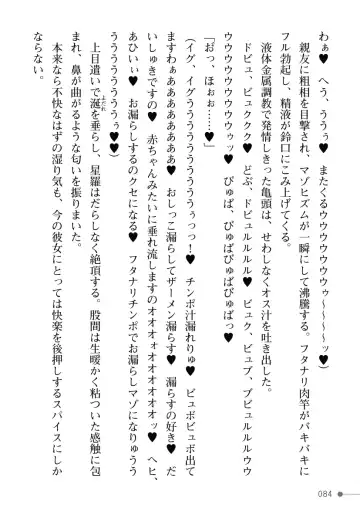 わぁ♥　へう、ううぅ♥　またくるウウウウウウウゥ～～～～ッ♥）
親友に粗相を目撃され、マゾヒズムが一瞬にして沸騰する。フタナリ肉竿がバキバキに
フル勃起し、精液が鈴口にこみ上げてくる。
液体金属調教で発情しきった亀頭は、せわしなくオス汁を吐き出した。
ドビュ、ビュククク♥　どぷ、ドビュルルルル♥　ビュク、ビュブ、ブビュルルルウウ
ウウウウウウウウゥッ♥　びゅぱ、びゅばびゅばびゅばっ♥
「おっ、ほぉぉ……♥」
（イグ、イグうううううううううぅぅっっ！♥　チンポ汁漏れりゅ♥　ビュボビュボ出て
ますわぁぁああああああぁ♥　おしっこ漏らしてザーメン漏らす♥　漏らすの好き♥　だ
いしゅきですの♥　赤ちゃんみたいに垂れ流しますのオオオォオオオオオオッ♥　ヘヒ、
あひいぃ♥　お漏らしするのクセになる♥　フタナリチンポでお漏らしマゾになりゅうう
ううううううぅぅ♥）
上目遣いで涎を垂らし、星羅はだらしなく絶頂する。股間は生暖かく粘ついた感触に包
よだれ
まれ、鼻が曲がるような匂いを振りまいた。
本来なら不快なはずの湿り気も、今の彼女にとっては快楽を後押しするスパイスにしか
ならない。
084